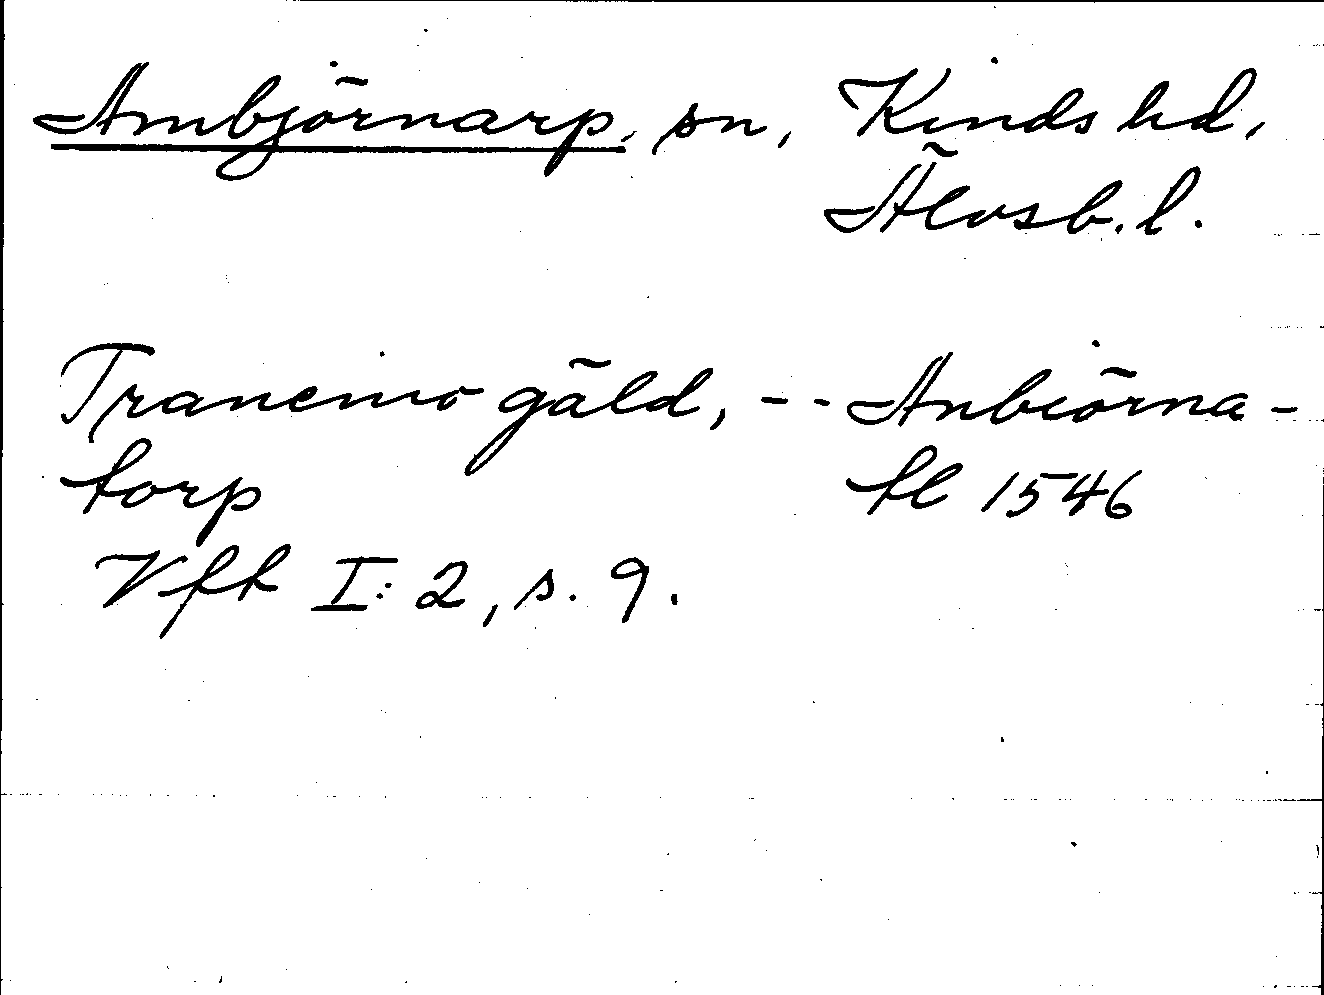 Ambjörnarp, sn, Kinds hd,
Älvsb. l.
Tranemo gäld, -- Anbiörna-
torp tl 1546
Vfh I:2, s. 9.